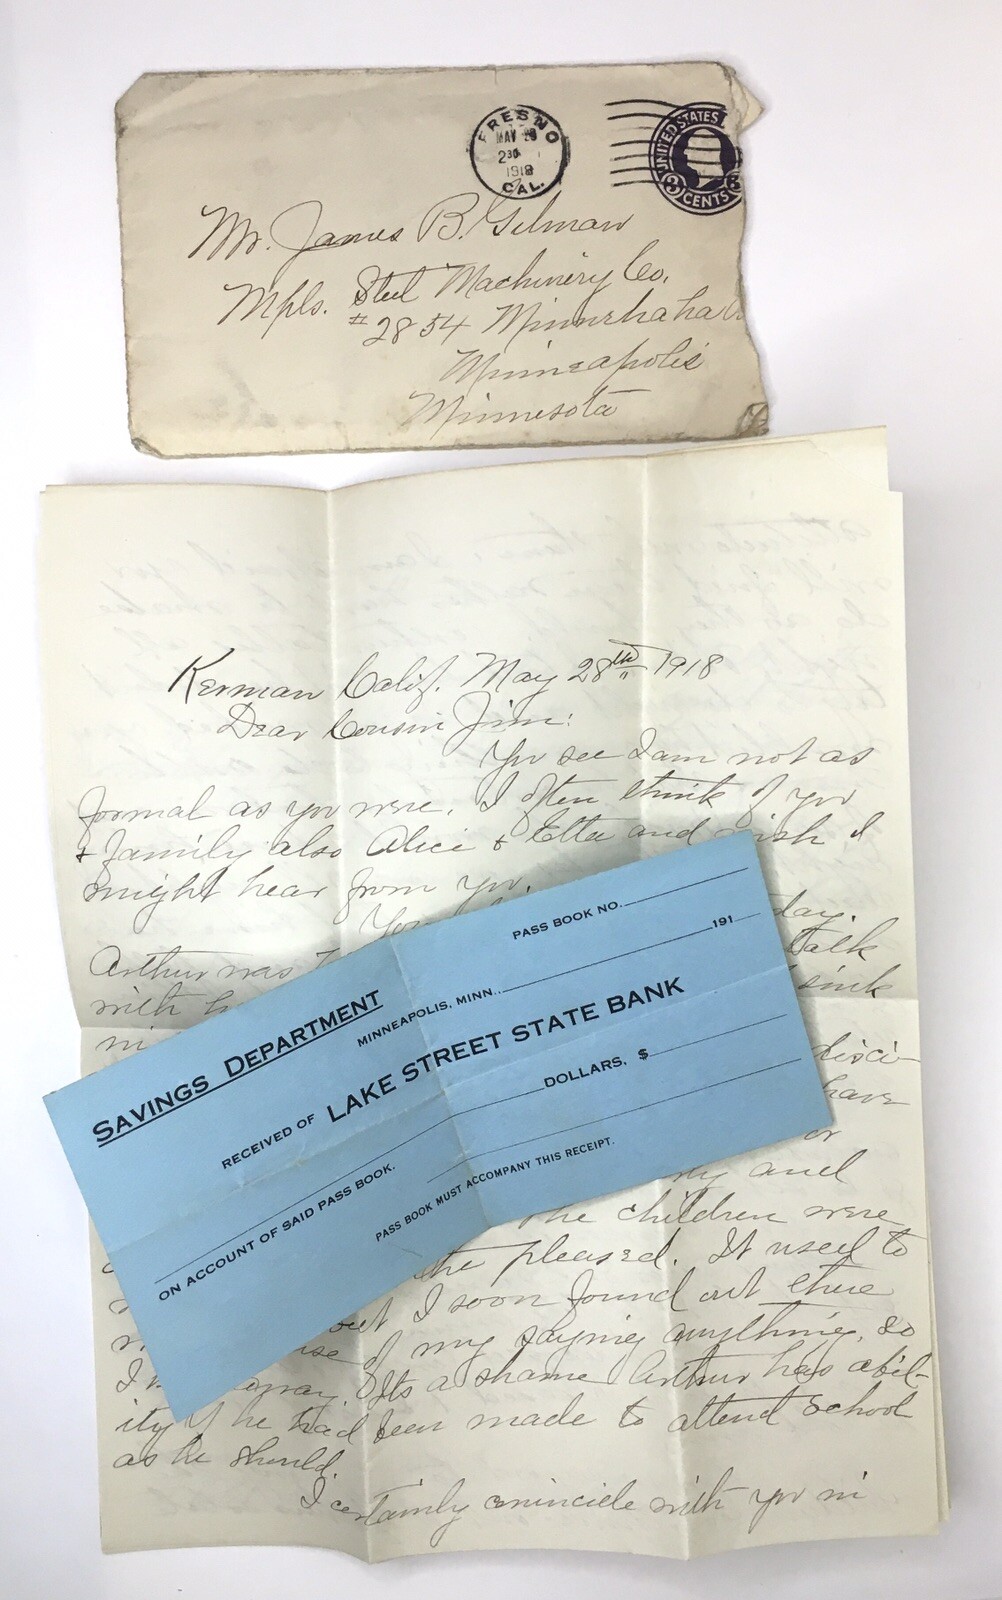 FRESNO
MAY 28
2 30
1918
CAL.
UNITED STATES
3 CENTS
Mr. James B. Gilman
Mpls. Steel Machinery Co.
# 2854 Minnehaha
Minneapolis
Minnesota
Kerman Calif. May 28th 1918
Dear Cousin Jim:
You see I am not as
formal as you were. I often think of you
& family also Alice & Etta and wish I
might hear from you.
day.
Arthur was talk
with sink
in
disci-
have
or
and
the children were
the pleased. It used to
but I soon found out there
use of my saying anything, so
I away. Its a shame Arthur has abil-
ity if he had been made to attend school
as he should.
I certainly conincide with you in
SAVINGS DEPARTMENT
PASS BOOK NO.
MINNEAPOLIS, MINN., 191
RECEIVED OF LAKE STREET STATE BANK
DOLLARS, $
ON ACCOUNT OF SAID PASS BOOK.
PASS BOOK MUST ACCOMPANY THIS RECEIPT.